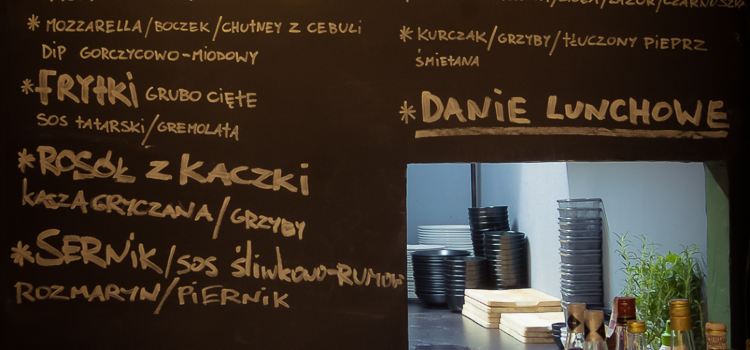 * MOZZARELLA/BOCZEK/CHUTNEY Z CEBULI
DIP GORCZYCOWO-MIODOWY
* FRYTKI GRUBO CIĘTE
SOS TATARSKI/GREMOLATA
* ROSÓŁ Z KACZKI
KASZA GRYCZANA/GRZYBY
* SERNIK/SOS ŚLIWKOWO-RUMOWY
ROZMARYN/PIERNIK
* KURCZAK/GRZYBY/TŁUCZONY PIEPRZ
ŚMIETANA
* DANIE LUNCHOWE